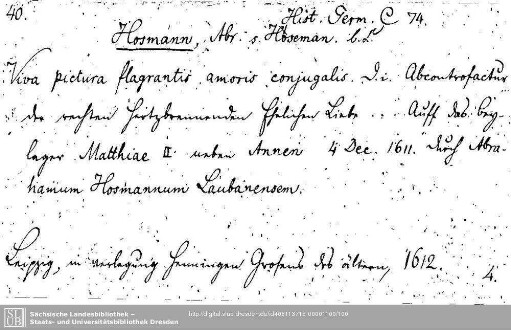 40.
Hist. Germ. C 74.
Hosmann, Abr. s. Hoseman. b.
Viva pictura flagrantis amoris conjugalis. D. i. Abcontrofactur
der rechten Hertzbrennenden Ehelichen Liebe ... Auff das bey-
lager Matthiae II. neben Annen 4 Dec. 1611. durch Abra-
hamum Hosmannum Laubanensem.
Leipzig, in verlegung Henningen Grosens des ältern, 1612.
4.
SLUB
Sächsische Landesbibliothek –
Staats- und Universitätsbibliothek Dresden